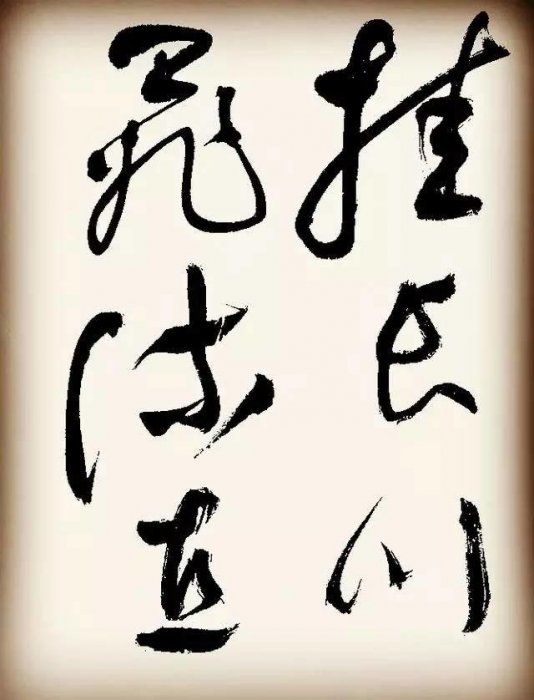 挂长川
飛流直